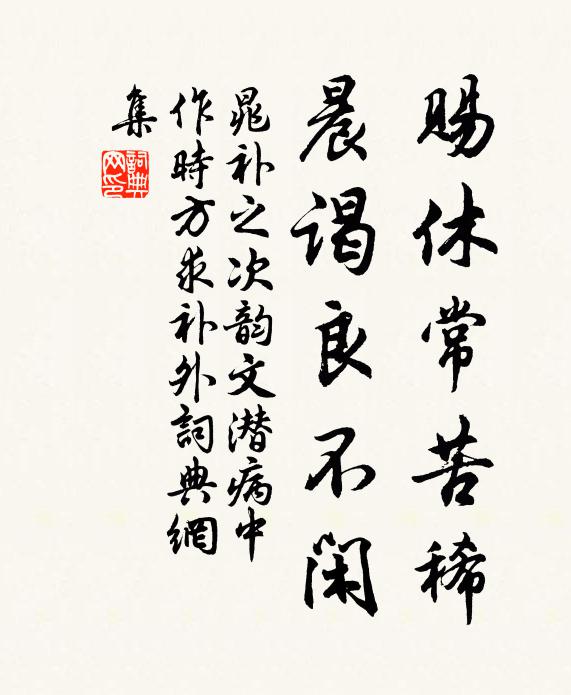 賜休常苦稀
晨谒良不閑
晁补之次韵文潜病中
作時方求补外詞典網
集
詞典网印